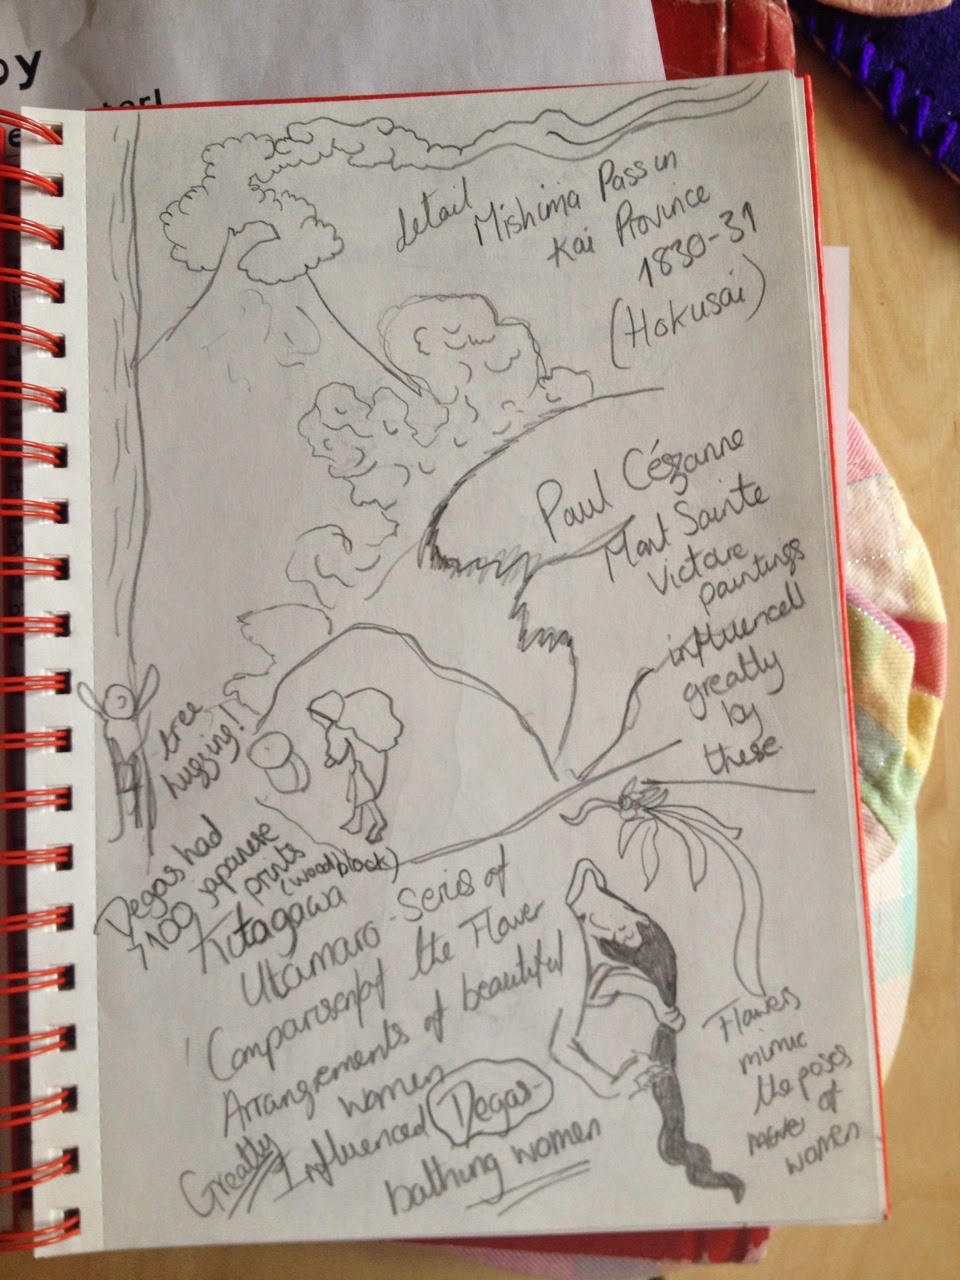 by
detail
Mishima Pass in
Kai Province
1830-31
(Hokusai)
Paul Cézanne
Mont Sainte
Victoire
paintings
influenced
greatly
by
these.
tree
hugging!
Degas had
7100 japanese
prints
(woodblock)
Kitagawa
Utamaro - Series of
'Comparoscript of the Flower
Arrangements of beautiful
women
Greatly
Influenced Degas-
bathing women
Flowers
mimic
the poses
of
women